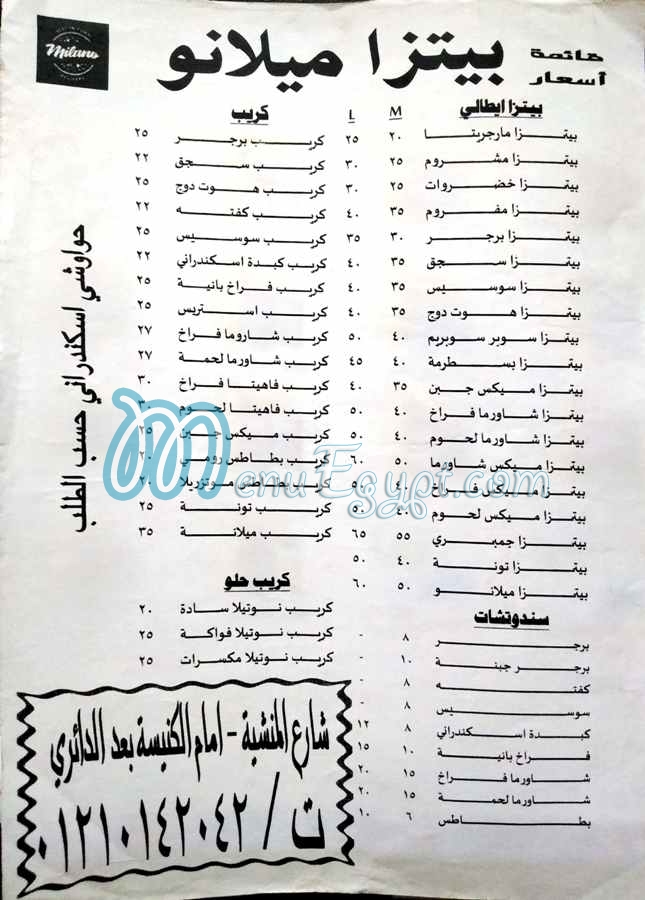 Milano
قائمة
أسعار
بيتزا ميلانو
بيتزا ايطالي M L
بيتزا مارجريتا ٢٠ ٢٥
بيتزا مشروم ٢٥ ٣٠
بيتزا خضروات ٢٥ ٣٠
بيتزا مفروم ٣٥ ٤٠
بيتزا برجر ٣٠ ٣٥
بيتزا سجق ٣٥ ٤٠
بيتزا سوسيس ٣٥ ٤٠
بيتزا هوت دوج ٣٥ ٤٠
بيتزا سوبر سوبريم ٤٠ ٥٠
بيتزا بسطرمة ٤٠ ٤٥
بيتزا ميكس جبن ٣٥ ٤٠
بيتزا شاورما فراخ ٤٠ ٥٠
بيتزا شاورما لحوم ٤٠ ٥٠
بيتزا ميكس شاورما ٥٠ ٦٠
بيتزا ميكس فراخ ٤٠ ٥٠
بيتزا ميكس لحوم ٤٠ ٥٠
بيتزا جمبري ٥٥ ٦٥
بيتزا تونة ٤٠ ٥٠
بيتزا ميلانو ٥٠ ٦٠
سندوتشات
برجر ٨ -
برجر جبنة ١٠ -
كفته ٨ -
سوسيس ٨ -
كبدة اسكندراني ٨ ١٢
فراخ بانية ١٠ ١٥
شاورما فراخ ١٥ ٢٠
شاورما لحمة ١٥ ٢٠
بطاطس ٦ ١٠
كريب
كريب برجر ٢٥
كريب سجق ٢٢
كريب هوت دوج ٢٥
كريب كفته ٢٢
كريب سوسيس ٢٥
كريب كبدة اسكندراني ٢٢
كريب فراخ بانية ٢٥
كريب استربس ٢٥
كريب شاروما فراخ ٢٧
كريب شاورما لحمة ٢٧
كريب فاهيتا فراخ ٣٠
كريب فاهيتا لحوم
كريب ميكس جبن ٢٥
كريب بطاطس رومي ٢٠
كريب بطاطس موتزريلا ٢٠
كريب تونة ٢٥
كريب ميلانة ٣٥
كريب حلو
كريب نوتيلا سادة ٢٠
كريب نوتيلا فواكة ٢٥
كريب نوتيلا مكسرات ٢٥
حواوشي اسكندراني حسب الطلب
شارع المنشية - امام الكنيسة بعد الدائري
ت / ٠١٢١٠١٤٢٠٤٢
MenuEgypt.com